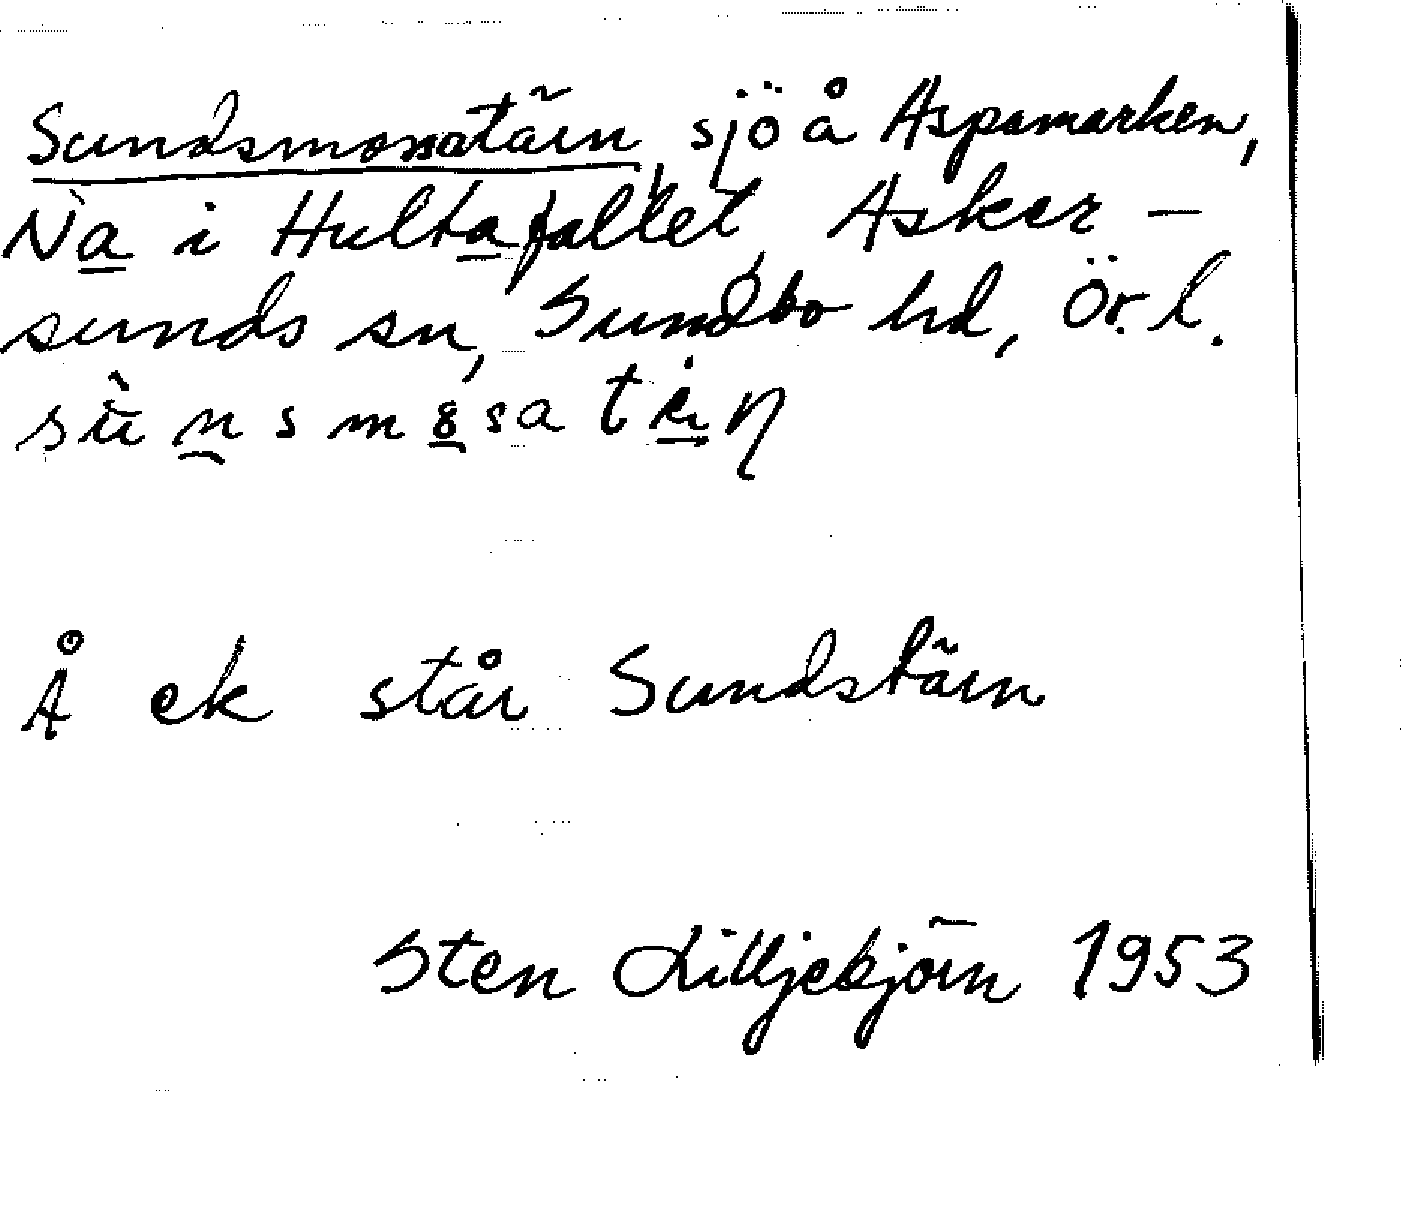 Sundsmossatärn, sjö å Aspamarken,
Na i Hultafallet, Asker-
sunds sn, Sundbo hd, Ör. l.
Å ek står Sundstärn
Sten Lilljebjörn 1953